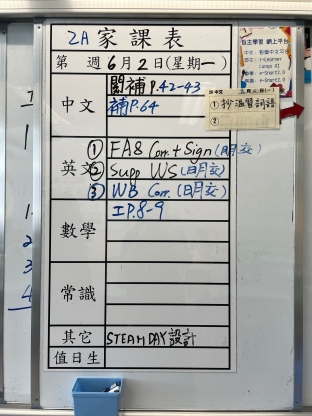 2A 家課表
第 週 6月2日(星期一)
中文
閱補 P.42-43
補 P.64
英文
① FA8 Corr. + Sign (明交)
② Supp WS (明交)
③ WB Corr. (明交)
數學
工P.8-9
常識
其它
STEAM DAY 設計
值日生
自主學習 網上平台
中文
① 抄溫習詞語
②
1
2
3
4